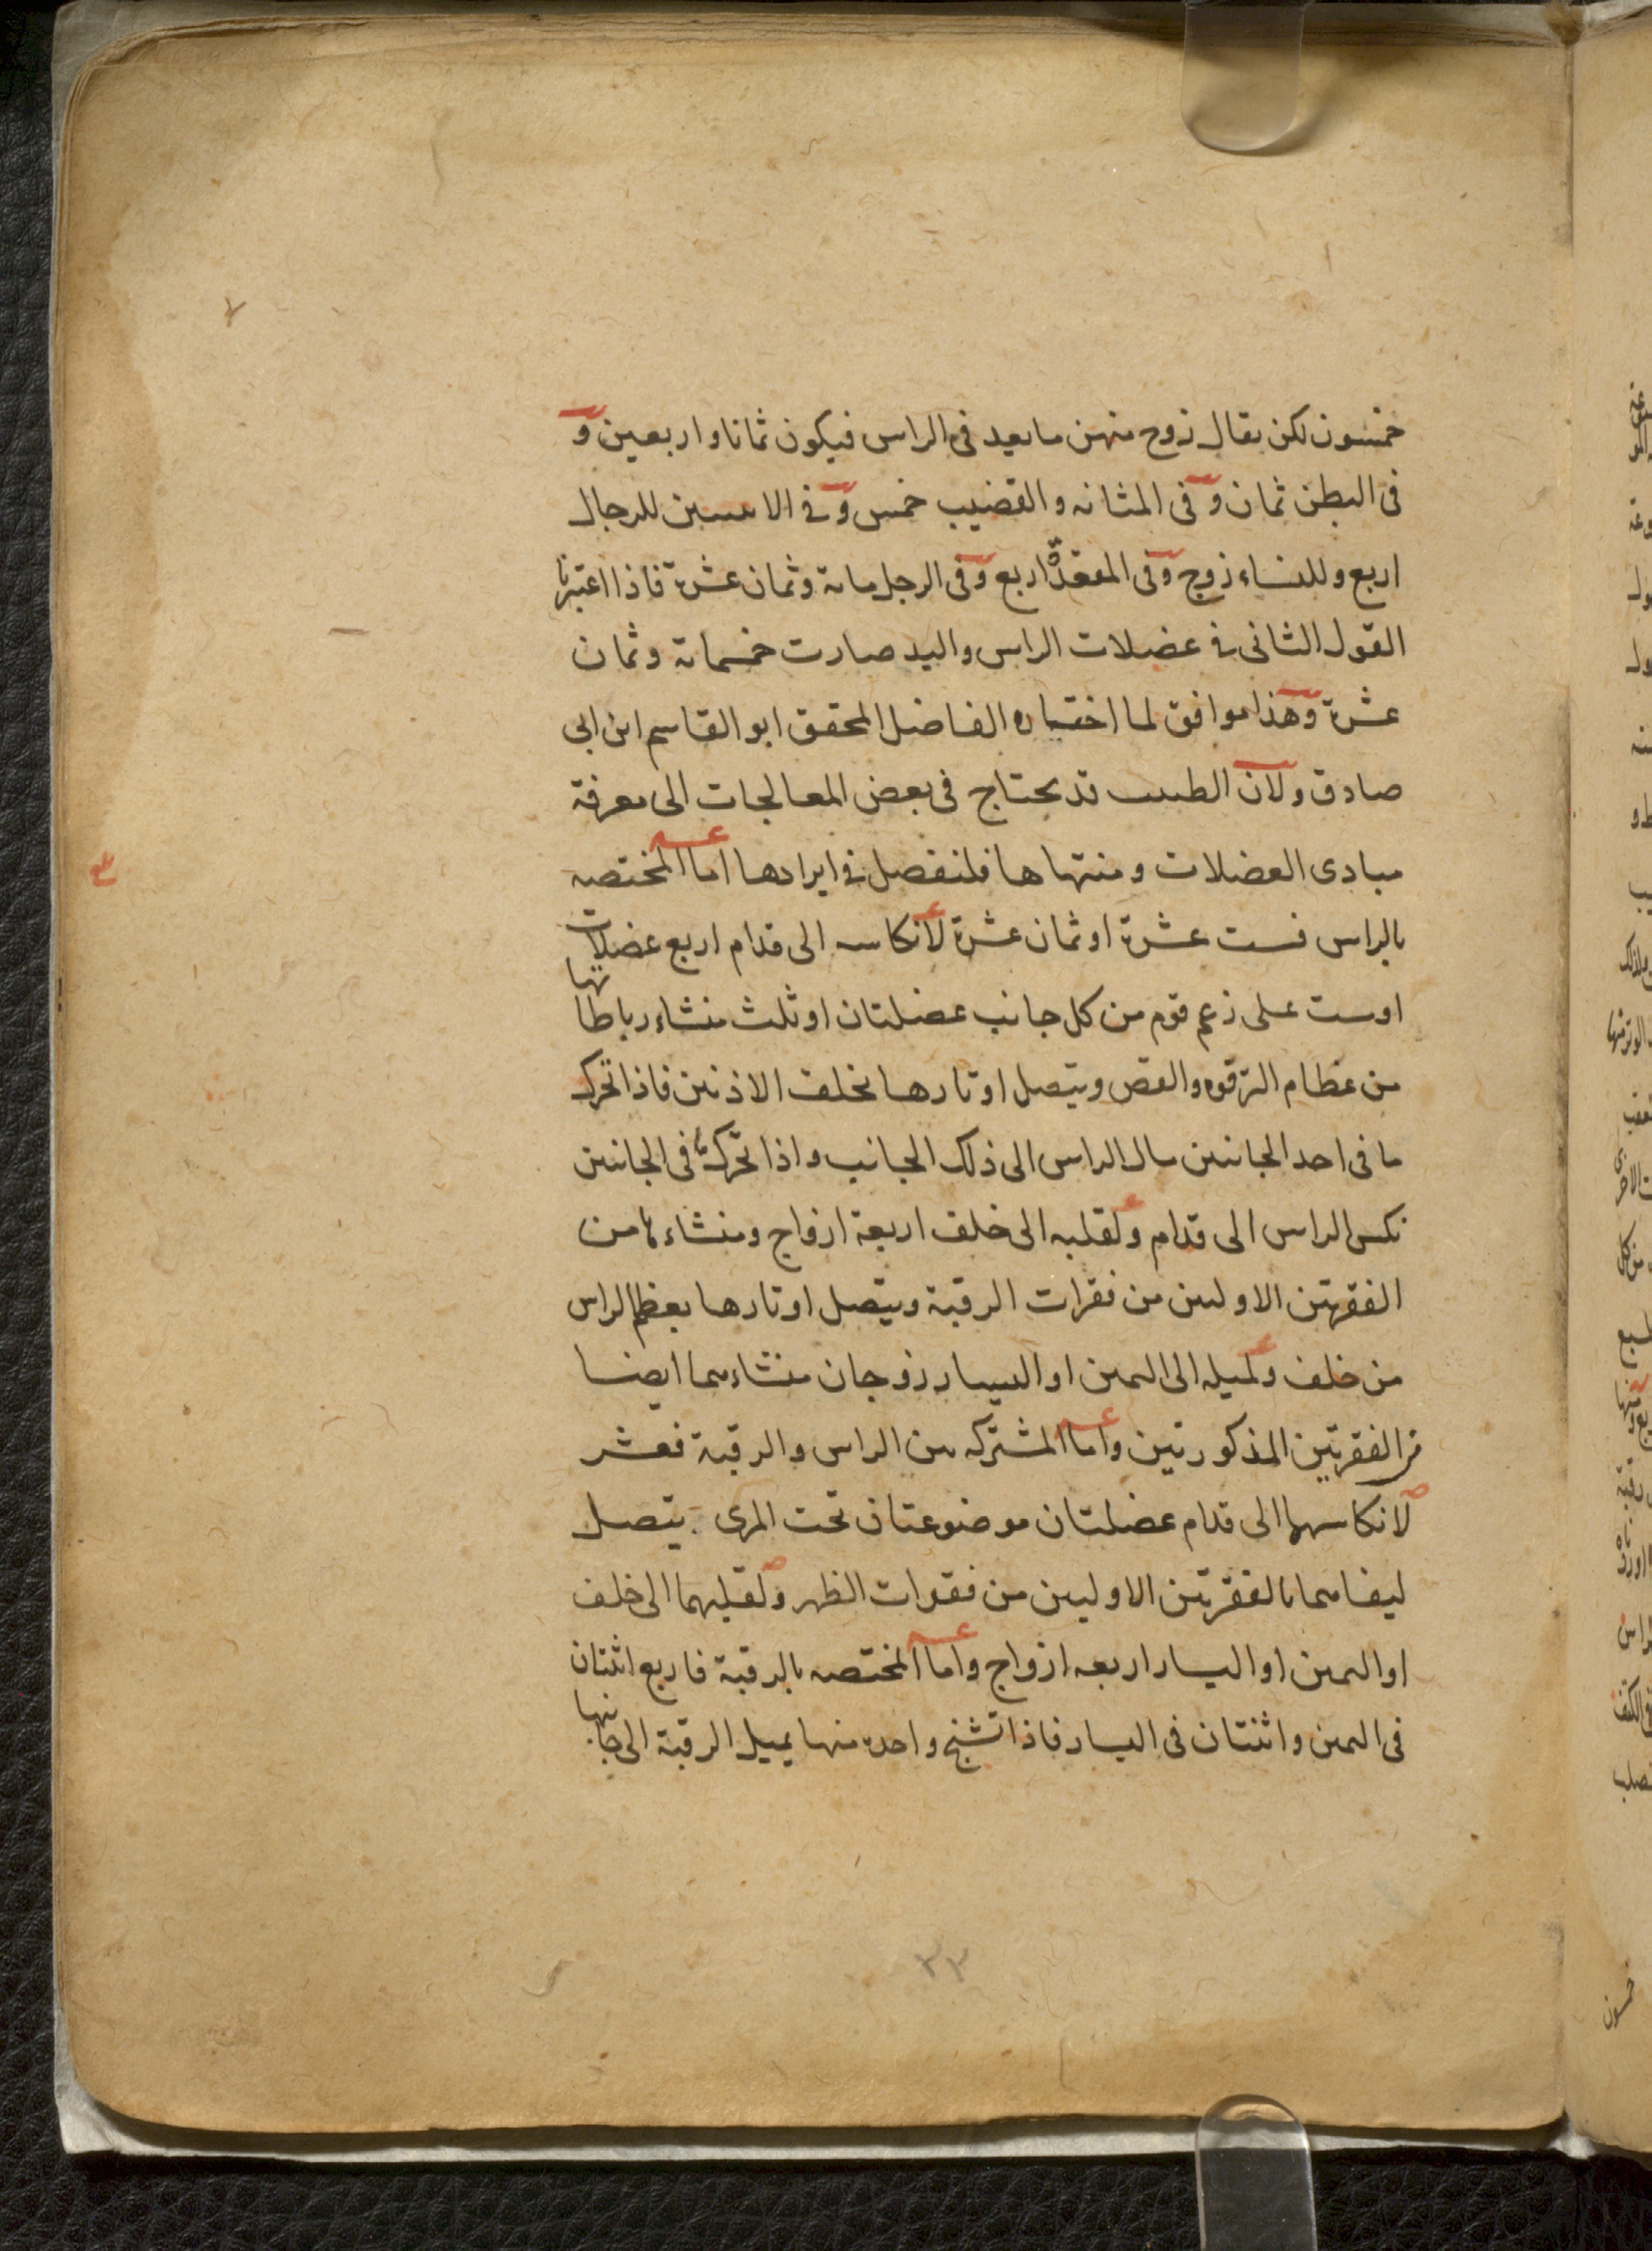 خمسون لكن يقال زوج منهن ما يعد في الراس فيكون ثمانا واربعين و
في البطن ثمان وفي المثانه والقضيب خمس وفي الانثيين للرجال
اربع وللنساء زوج وفي المقعدة اربع وفي الرجل مائة وثمان عشرة فاذا اعتبرنا
القول الثاني في عضلات الراس واليد صارت خمسمائة وثمان
عشرة وهذا موافق لما اختياره الفاضل المحقق ابو القاسم ابن ابي
صادق ولان الطبيب قد يحتاج في بعض المعالجات الى معرفة
مبادى العضلات ومنتهاها فلنفصل في ايرادها اما المختصه
بالراس فست عشرة او ثمان عشرة لانكاسه الى قدام اربع عضلات
اوست على زعم قوم من كل جانب عضلتان او ثلث منشاء رباطاتها
من عظام الترقوه والقص ويتصل اوتارها بخلف الاذنين فاذا تحرك
ما في احد الجانبين مال الراس الى ذلك الجانب واذا تحركتا في الجانبين
نكس الراس الى قدام ولقلبه الى خلف اربعة ازواج ومنشاءها من
الفقرتين الاوليين من فقرات الرقبة ويتصل اوتارها بعظم الراس
من خلف ولميله الى اليمين او اليسار زوجان منشاءهما ايضا
من الفقرتين المذكورتين واما المشتركه بين الراس والرقبة فعشر
لانكاسهما الى قدام عضلتان موضوعتان تحت المرى يتصل
ليفاهما بالفقرتين الاوليين من فقرات الظهر ولقلبهما الى خلف
او اليمين او اليسار اربعه ازواج واما المختصه بالرقبة فاربع اثنتان
في اليمين واثنتان في اليسار فاذا تشنج واحده منها يميل الرقبة الى جانبها
٣٣